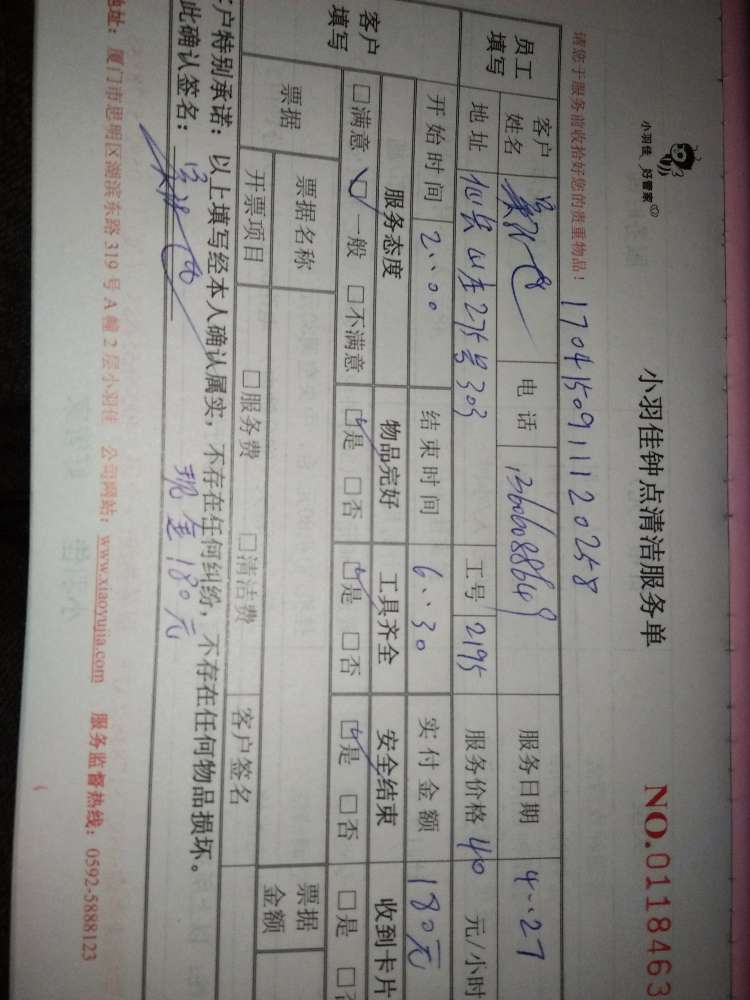 小羽佳 好管家
小羽佳钟点清洁服务单
NO.0118463
请您于服务前收拾好您的贵重物品!
1704150911120258
员工填写 客户姓名 电话 服务日期 4..27
地址 仙岳山庄275号303 工号 2195 服务价格 40 元/小时
开始时间 2..00 结束时间 6..30 实付金额 180元
客户填写 服务态度 物品完好 工具齐全 安全结束 收到卡片
□满意 □一般 □不满意 □是 □否 □是 □否 □是 □否 □是
票据 票据名称 票据金额
开票项目 □服务费 □清洁费 客户签名
户特别承诺:以上填写经本人确认属实,不存在任何纠纷,不存在任何物品损坏。
此确认签名: 现金180元
地址:厦门市思明区湖滨东路319号A幢2层小羽佳 公司网站:www.xiaoyujia.com 服务监督热线:0592-5888123